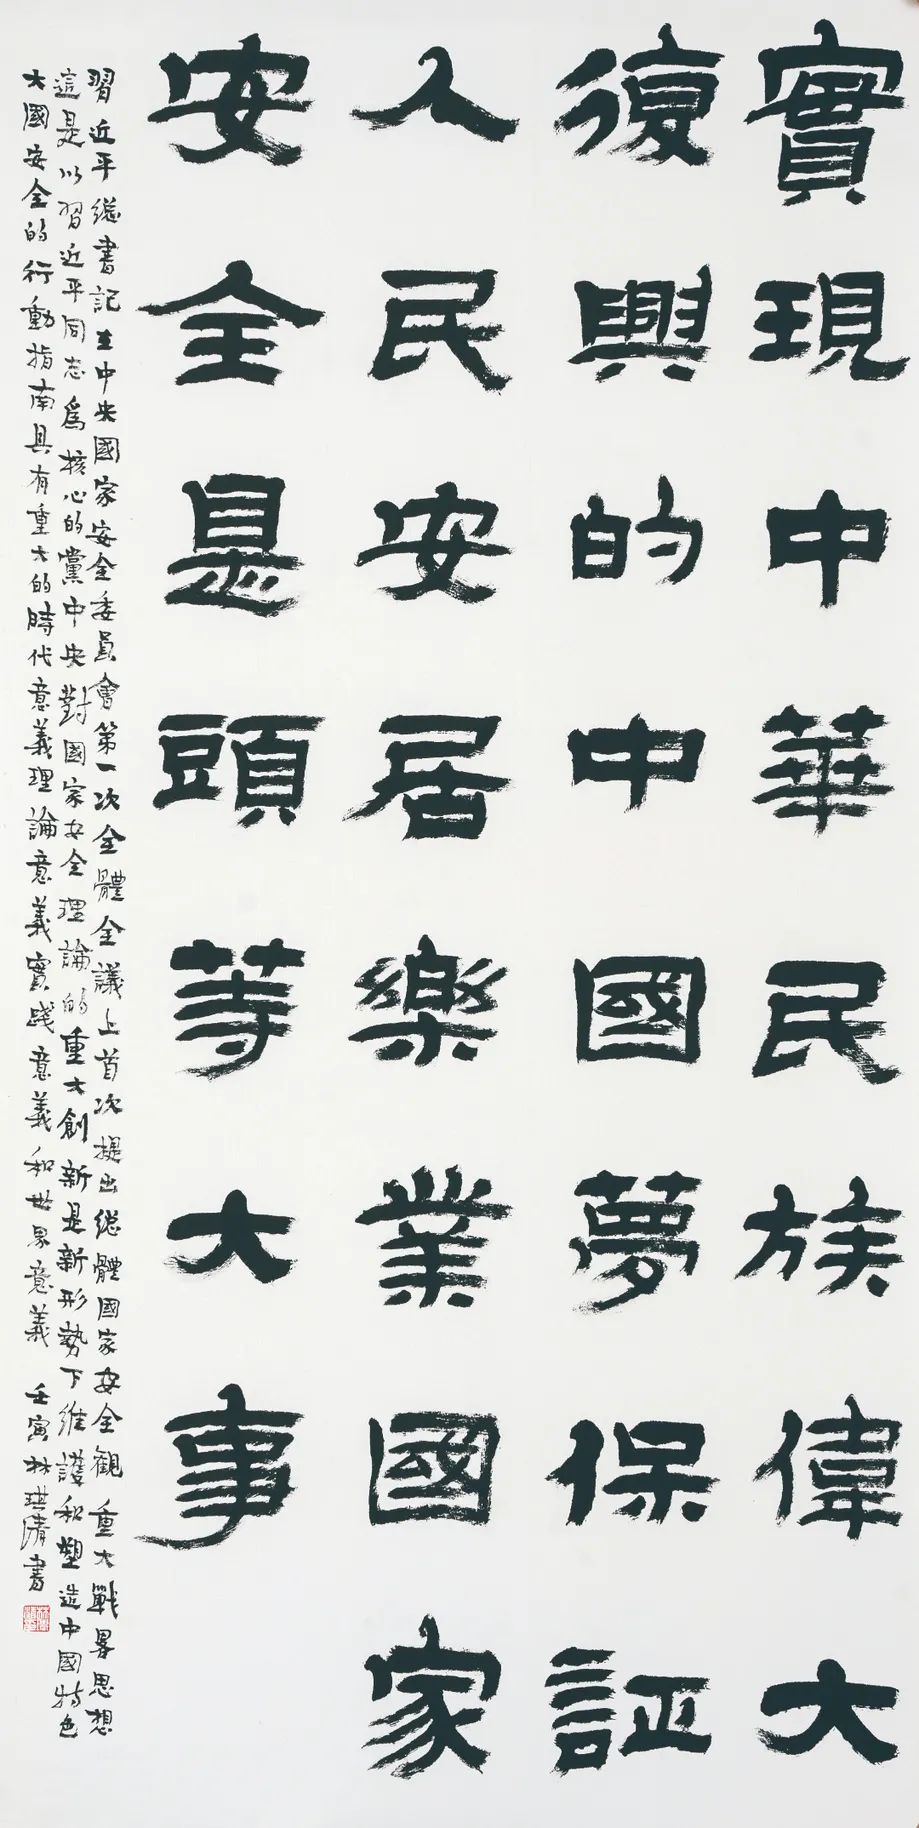 實現中華民族偉大
復興的中國夢保証
人民安居樂業國家
安全是頭等大事
習近平總書記在中央國家安全委員會第一次全體會議上首次提出總體國家安全觀重大戰畧思想
這是以習近平同志為核心的黨中央對國家安全理論的重大創新是新形勢下維護和塑造中國特色
大國安全的行動指南具有重大的時代意義理論意義實踐意義和世界意義 壬寅林琪清書